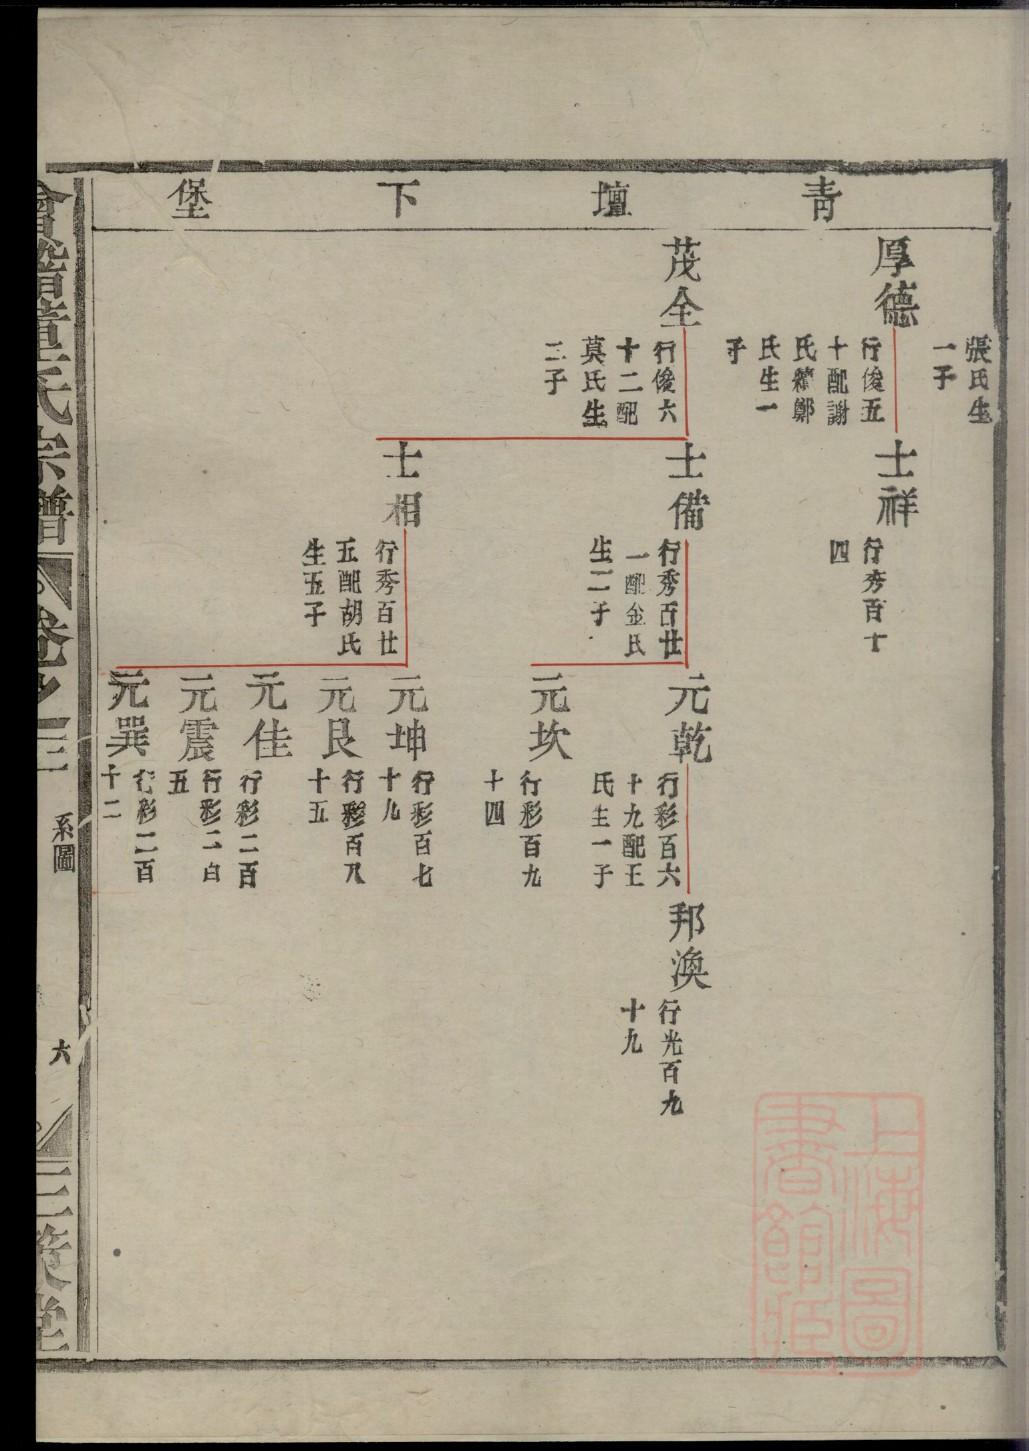 青壇下堡
張氏生
一子
厚德
行俊五
十配謝
氏續鄭
氏生一
子
士祥
行秀百十
四
茂全
行俊六
十二配
莫氏生
二子
士備
行秀百廿
一配金氏
生二子
士相
行秀百廿
五配胡氏
生五子
元乾
行彩百六
十九配王
氏生一子
元坎
行彩百九
十四
元坤
行彩百七
十九
元艮
行彩百八
十五
元佳
行彩二百
元震
行彩二百
五
元巽
行彩二百
十二
邦渙
行光百九
十九
會稽章氏宗譜
卷之二
系圖
六
上海圖書館藏